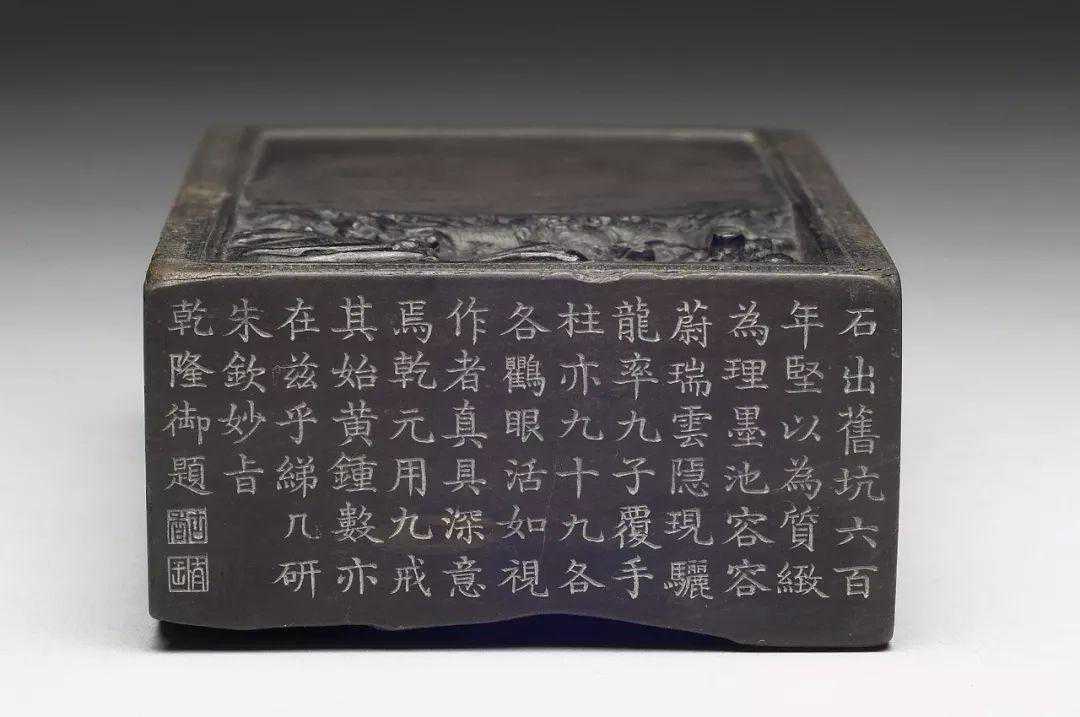 石出舊坑六百
年堅以為質緻
為理墨池容容
蔚瑞雲隱現驪
龍率九子覆手
柱亦九十九各
各鸜眼活如視
作者真具深意
焉乾元用九戒
其始黄鍾數亦
在茲乎綈几研
朱欽妙㫖
乾隆御題